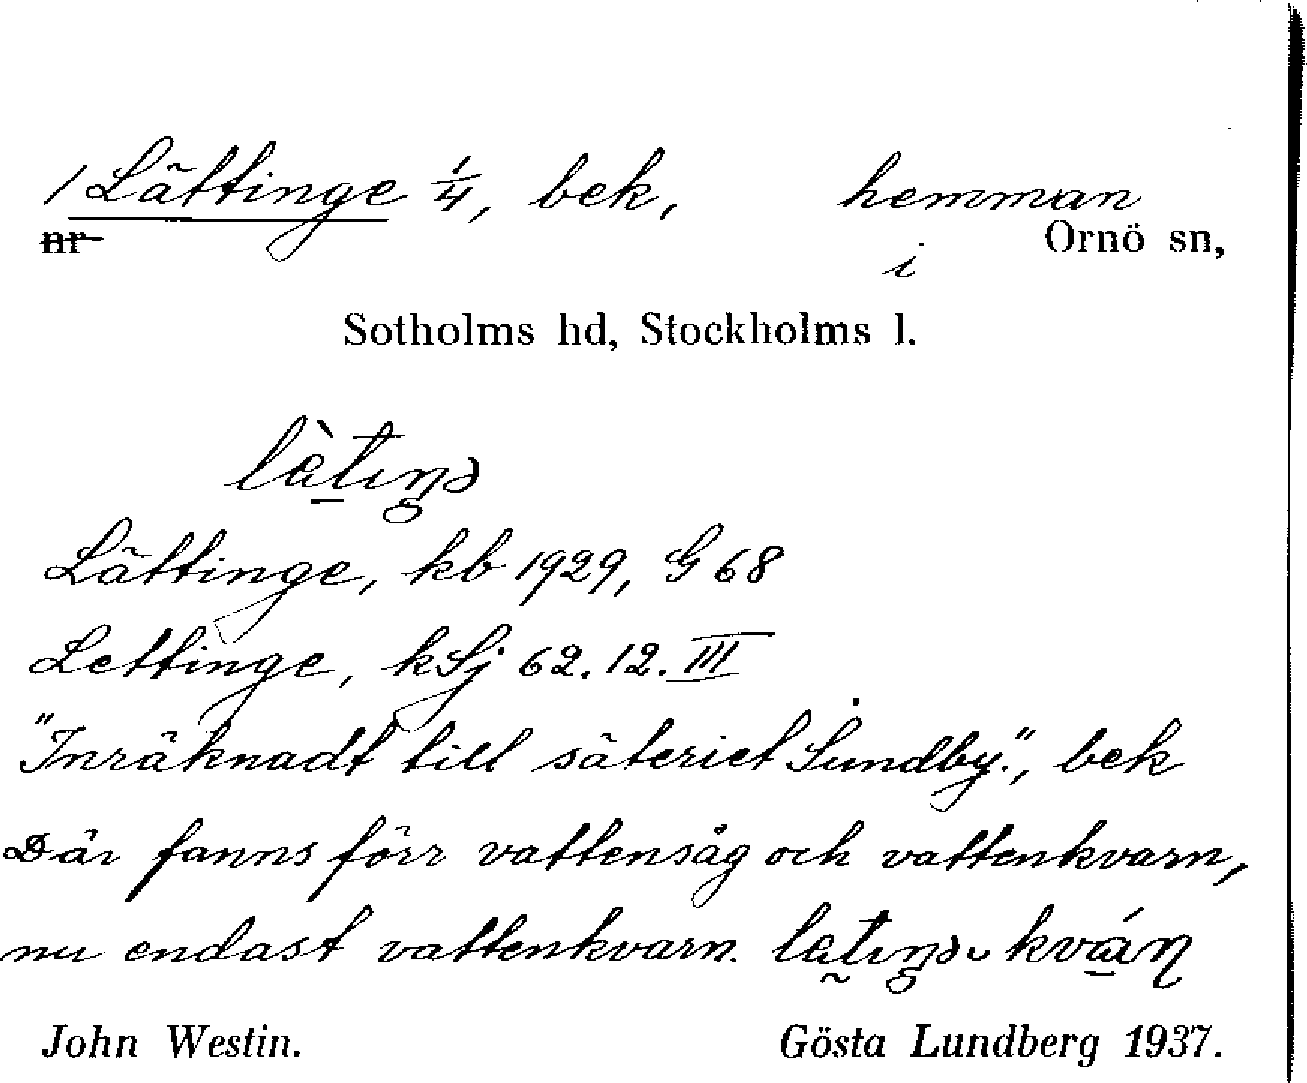 1 Lättinge 1/4, bek, hemman
nr i Ornö sn,
Sotholms hd, Stockholms l.
Lättinge, kb 1929, G 68
Lettinge, kSj 62.12.III
"Inräknadt till säteriet Sundby.", bek
Där fanns förr vattensåg och vattenkvarn,
nu endast vattenkvarn.
John Westin. Gösta Lundberg 1937.